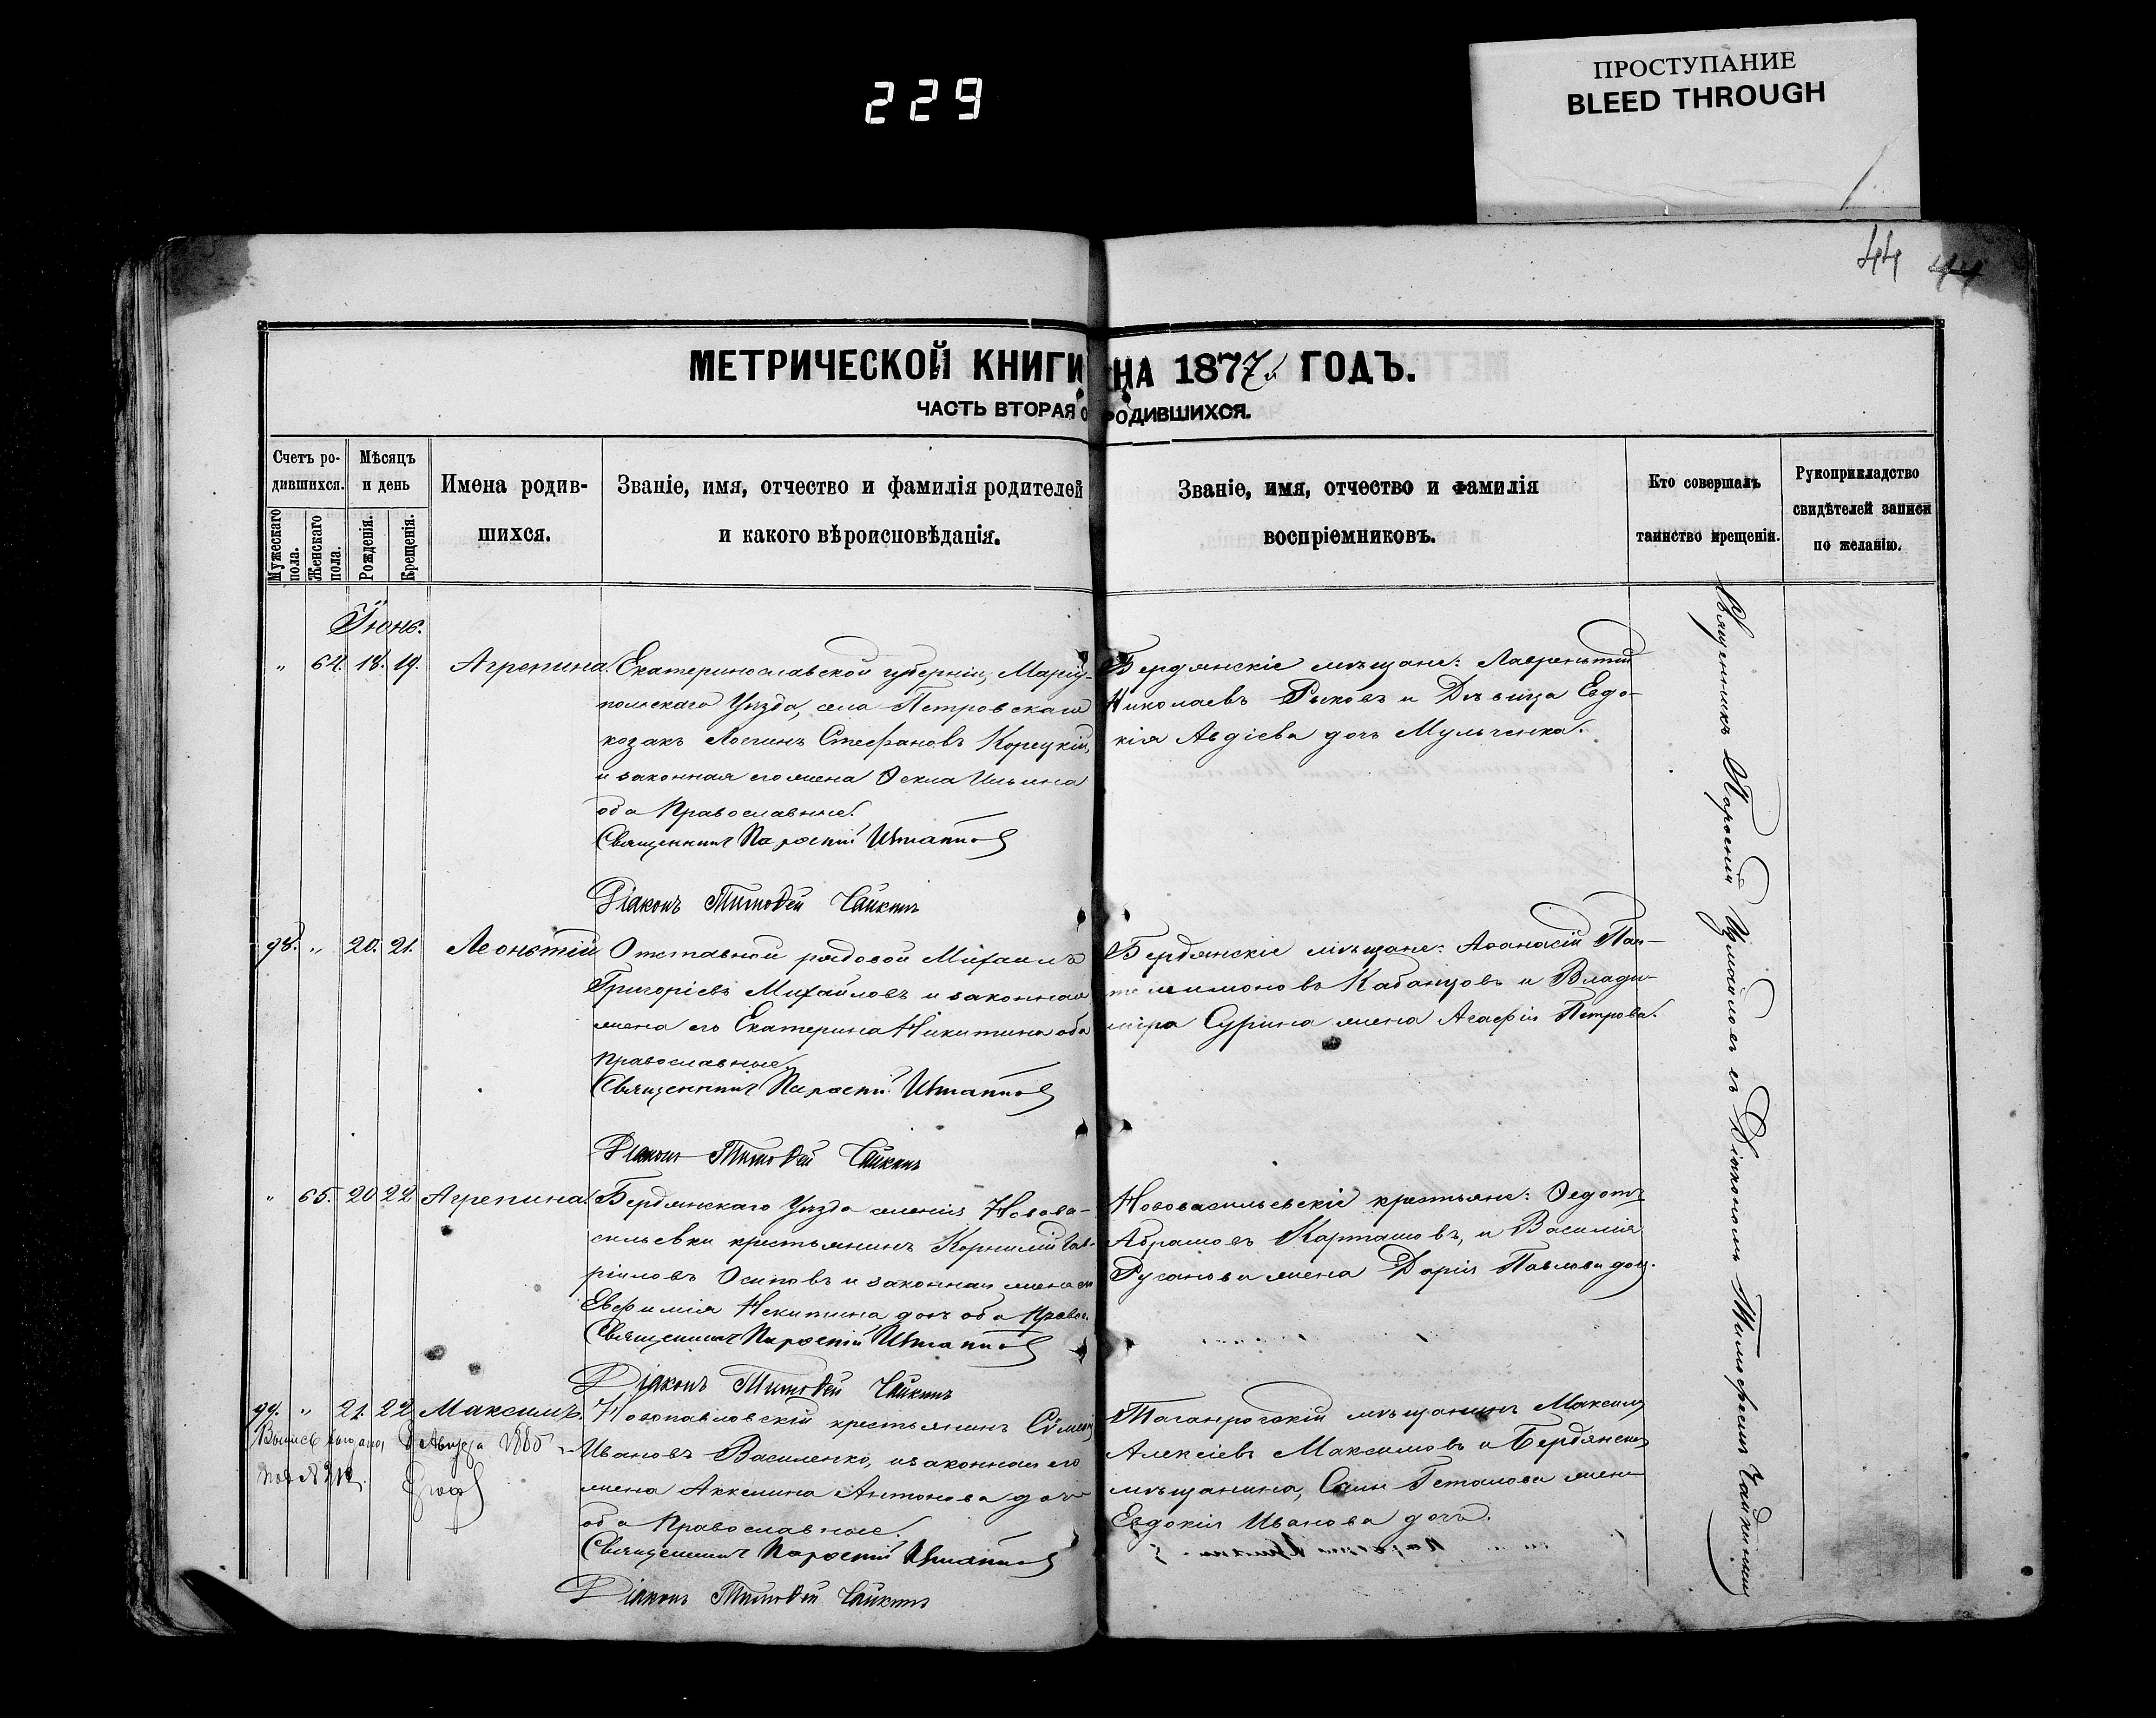 229
ПРОСТУПАНИЕ
BLEED THROUGH
44 44
МЕТРИЧЕСКОЙ КНИГИ НА 1877й ГОДЪ.
ЧАСТЬ ВТОРАЯ О РОДИВШИХСЯ.
Счетъ ро-
дившихся.
Мужескаго пола.
Женскаго пола.
Мѣсяцъ
и день
Рожденія.
Крещенія.
Имена родив-
шихся.
Званіе, имя, отчество и фамилія родителей
и какого вѣроисповѣданія.
Званіе, имя, отчество и фамилія
воспріемниковъ.
Кто совершалъ
таинство крещенія.
Рукоприкладство
свидѣтелей записи
по желанію.
Іюнь.
„ 64. 18. 19. Агрепина.
Екатеринославской губерніи, Маріу-
польскаго Уѣзда, села Петровскаго
козакъ Логинъ Стефановъ Корецкій,
и законная его жена Ѳекла Ильина
оба Православные.
Священникъ Парѳеній
Діаконъ Тимоѳей Чайкинъ
Бердянскіе мѣщане: Лаврентій
Николаевъ Рыковъ и Дѣвица Евдо-
кія Авдіева дочь Мульченка.
98. „ 20. 21. Леонтій
Отставной рядовой Михаилъ
Григоріевъ Михайловъ и законная
жена его Екатерина Никитина оба
православные
Священникъ Парѳеній
Діаконъ Тимоѳей Чайкинъ
Бердянскіе мѣщане: Аѳанасій Пан-
телимоновъ Кабанцовъ и Влади-
міра Сурина жена Агафія Петрова.
„ 65. 20 22 Агрепина.
Бердянскаго Уѣзда селенія Нова-
сильевки крестьянинъ Корнилій Гав-
ріиловъ Осиповъ и законная жена его
Евфимія Никитина дочь оба Правос.
Священникъ Парѳеній
Діаконъ Тимоѳей Чайкинъ
Нововасильевскіе крестьяне: Ѳедотъ
Абрамовъ Карташовъ, и Василія
Русанова жена Дарія Павлова доч.
99. „ 21. 22 Максимъ.
Выпись выдана, Августа
под №
Новопавловскій крестьянинъ
Ивановъ Василенко, и законная его
жена Аккелина Антонова дочь
оба Православные.
Священникъ Парѳеній
Діаконъ Тимоѳей Чайкинъ
Таганрогскій мѣщанинъ Максимъ
Алексіевъ Максимовъ и Бердянскаго
мѣщанина, жена
Евдокія Иванова дочь.
Священникъ Парѳеній Измаиловъ съ Діакономъ Тимоѳеемъ Чайкинымъ